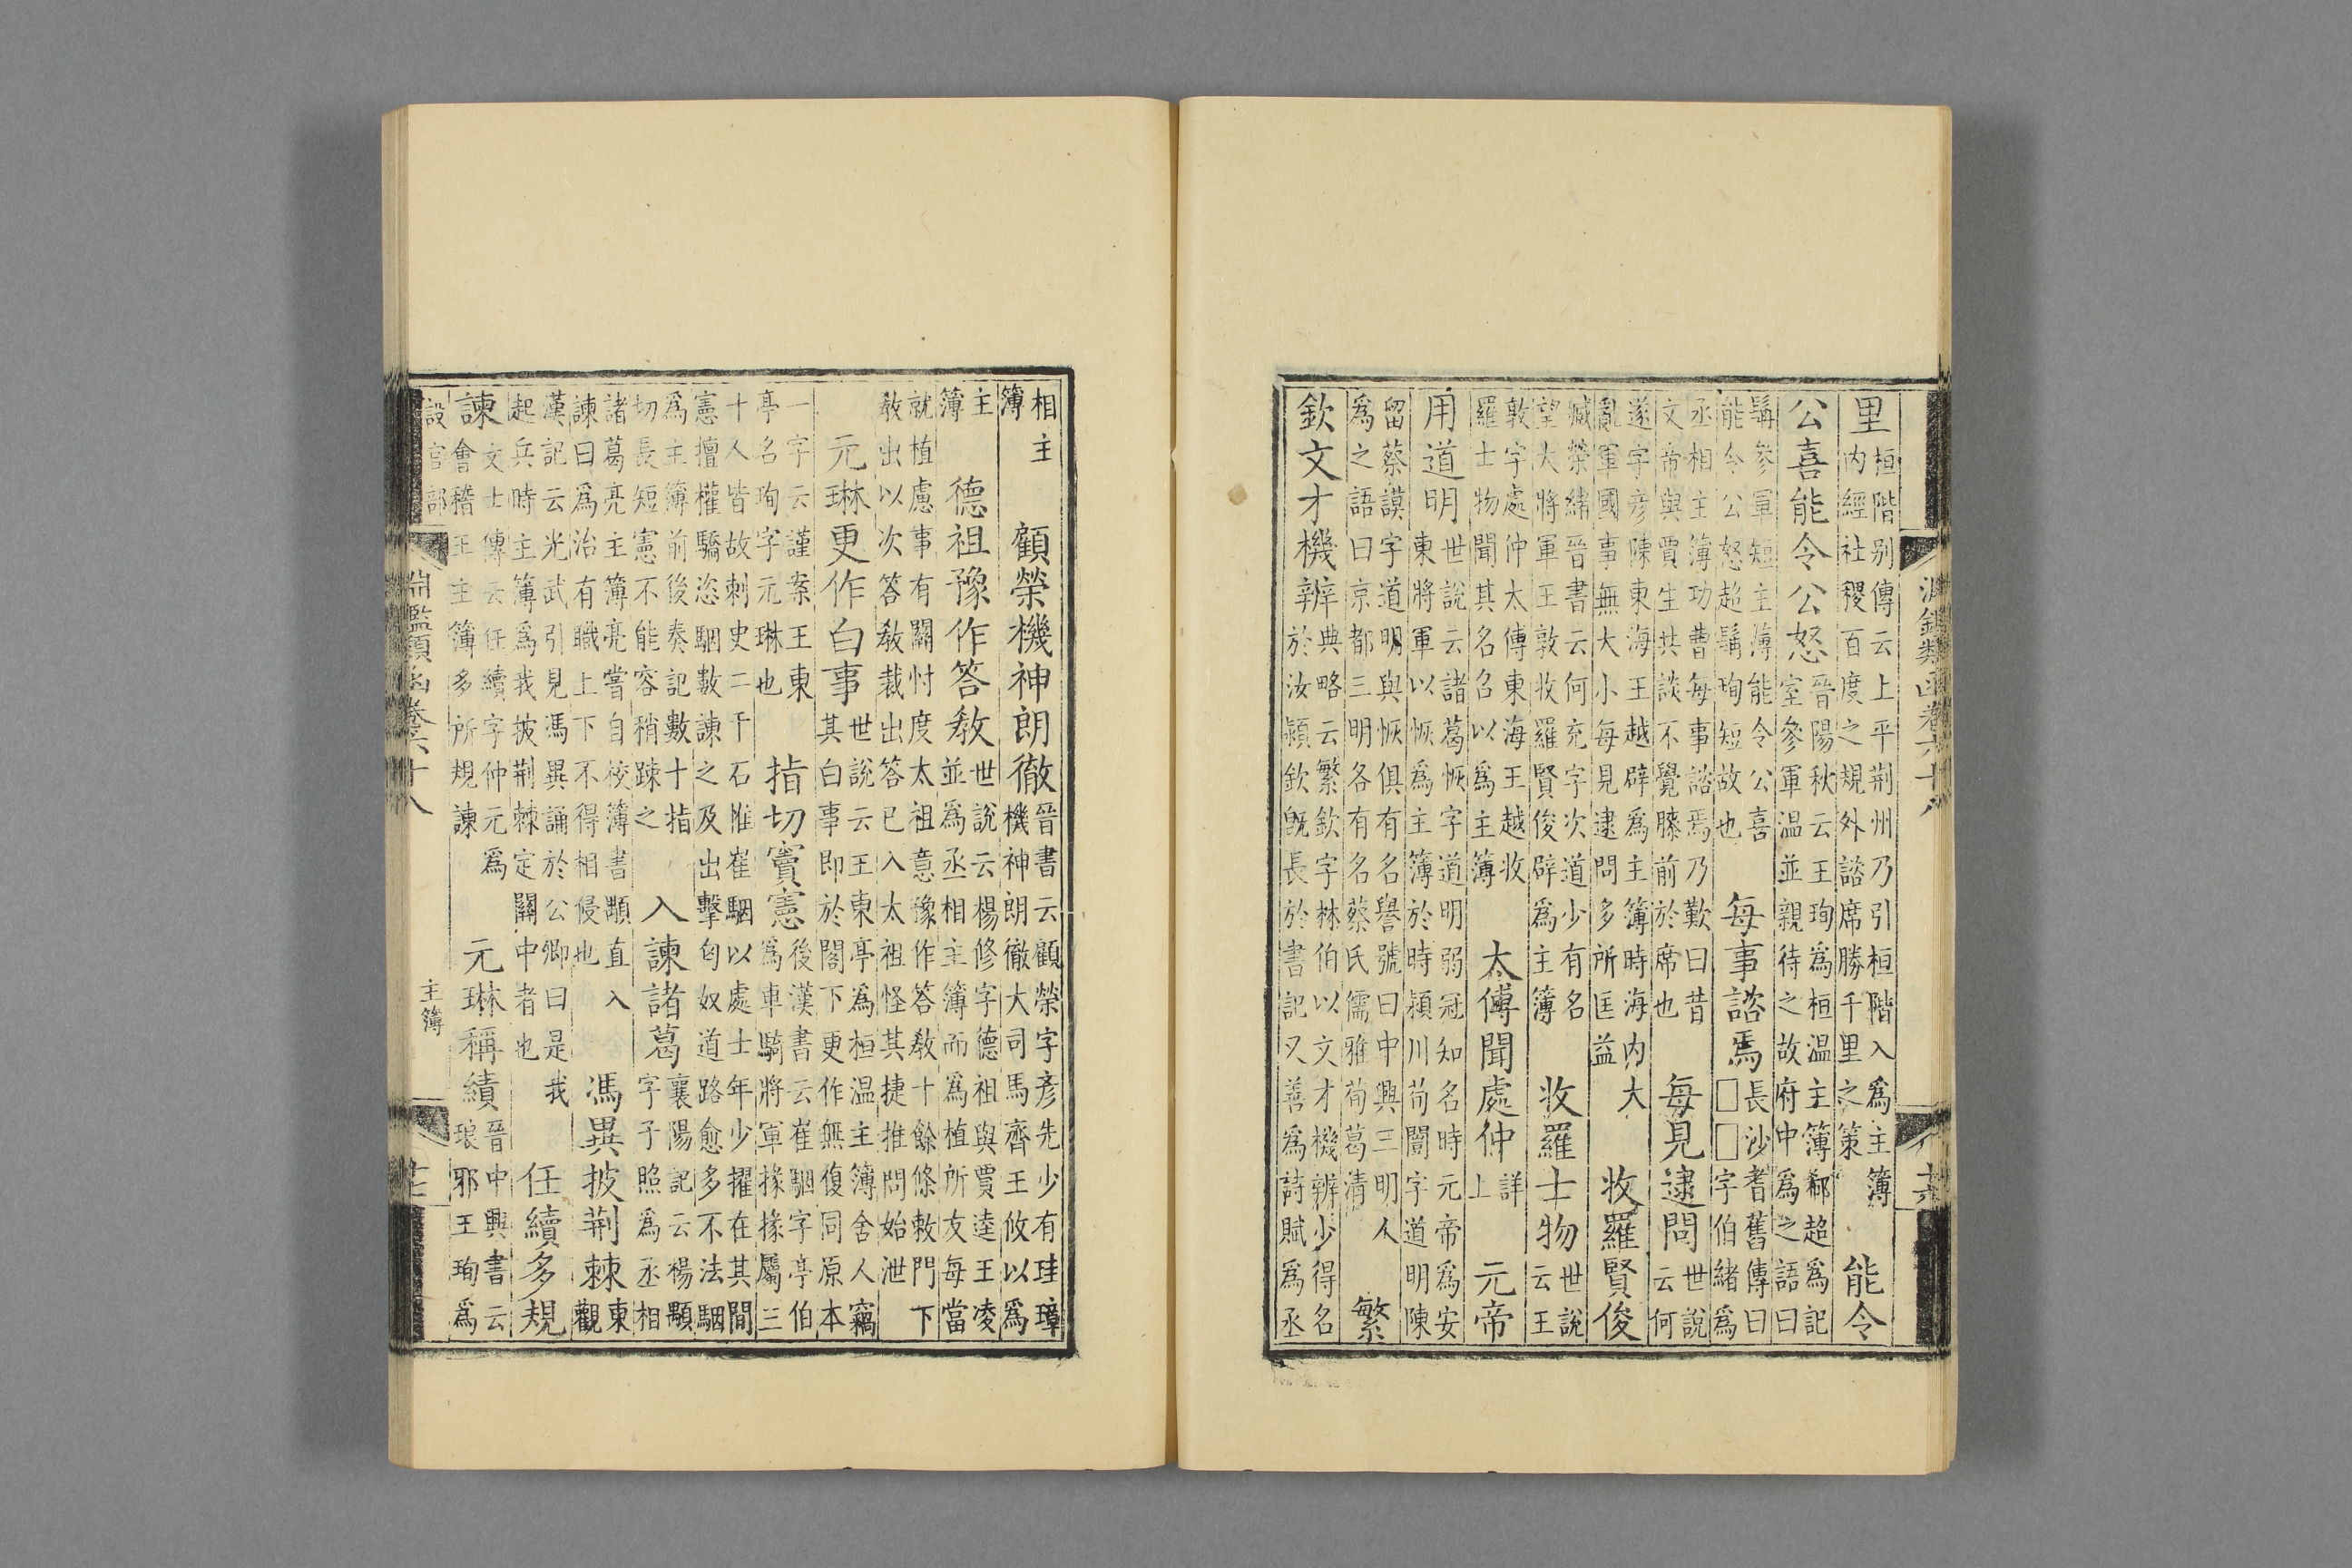 淵鑑類函卷六十八 十六
里桓階别傳云上平荆州乃引桓階入爲主簿内經社稷百度之規外諮席勝千里之策能令
公喜能令公怒晉陽秋云王珣爲桓温主簿郗超爲記室參軍温並親待之故府中爲之語曰
髯參軍短主簿能令公喜能令公怒超髯珣短故也每事諮焉長沙耆舊傳曰□□字伯緒爲
丞相主簿功曹每事諮焉乃歎曰昔文帝與賈生共談不覺膝前於席也每見逮問世說云何
遂字彥陳東海王越辟爲主簿時海内大亂軍國事無大小每見逮問多所匡益收羅賢俊
臧榮緒晉書云何充字次道少有名望大將軍王敦收羅賢俊辟爲主簿收羅士物世說云王
敦字處仲太傅東海王越收羅士物聞其名召以爲主簿太傅聞處仲詳上元帝
用道明世說云諸葛恢字道明弱冠知名時元帝爲安東將軍以恢爲主簿於時潁川荀闓字道明陳
留蔡謨字道明與恢俱有名譽號曰中興三明人爲之語曰京都三明各有名蔡氏儒雅荀葛清繁
欽文才機辨典略云繁欽字林伯以文才機辨少得名於汝潁欽旣長於書記又善爲詩賦爲丞
相主簿顧榮機神朗徹晉書云顧榮字彥先少有珪璋機神朗徹大司馬齊王攸以爲
主簿德祖豫作答教世說云楊修字德祖與賈逵王凌並爲丞相主簿而爲植所友每當
就植慮事有闕忖度太祖意豫作答教十餘條敕門下教出以次答教裁出答已入太祖怪其捷推問始泄
元琳更作白事世說云王東亭爲桓温主簿舍人竊其白事即於閣下更作無復同原本
一字云謹案王東亭名珣字元琳也指切竇憲後漢書云崔駰字亭伯爲車騎將軍掾掾屬三
十人皆故刺史二千石惟崔駰以處士年少擢在其間憲擅權驕恣駰數諫之及出擊匈奴道路愈多不法駰
爲主簿前後奏記數十指切長短憲不能容稍踈之入諫諸葛襄陽記云楊顒字子照爲丞相
諸葛亮主簿亮嘗自校簿書顒直入諫曰爲治有職上下不得相侵也馮異披荆棘東觀
漢記云光武引見馮異誦於公卿曰是我起兵時主簿爲我披荆棘定關中者也任續多規
諫文士傳云任續字仲元爲會稽王主簿多所規諫元琳稱績晉中興書云琅邪王珣爲
淵鑑類函卷六十八 設官部 主簿 十七